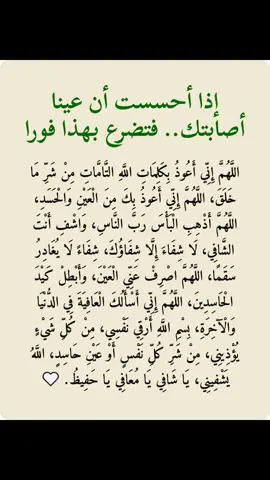 إذا أحسست أن عينا
أصابتك.. فتضرع بهذا فورا
اللَّهُمَّ إِنِّي أَعُوذُ بِكَلِمَاتِ اللَّهِ التَّامَّاتِ مِنْ شَرِّ مَا
خَلَقَ، اللَّهُمَّ إِنِّي أَعُوذُ بِكَ مِنَ الْعَيْنِ وَالْحَسَدِ،
اللَّهُمَّ أَذْهِبِ الْبَأْسَ رَبَّ النَّاسِ، وَاشْفِ أَنْتَ
الشَّافِي، لَا شِفَاءَ إِلَّا شِفَاؤُكَ، شِفَاءً لَا يُغَادِرُ
سَقَمًا، اللَّهُمَّ اصْرِفْ عَنِّي الْعَيْنَ، وَأَبْطِلْ كَيْدَ
الْحَاسِدِينَ، اللَّهُمَّ إِنِّي أَسْأَلُكَ الْعَافِيَةَ فِي الدُّنْيَا
وَالْآخِرَةِ، بِسْمِ اللَّهِ أَرْقِي نَفْسِي، مِنْ كُلِّ شَيْءٍ
يُؤْذِينِي، مِنْ شَرِّ كُلِّ نَفْسٍ أَوْ عَيْنِ حَاسِدٍ، اللَّهُ
يَشْفِينِي، يَا شَافِي يَا مُعَافِي يَا حَفِيظُ. 🤍